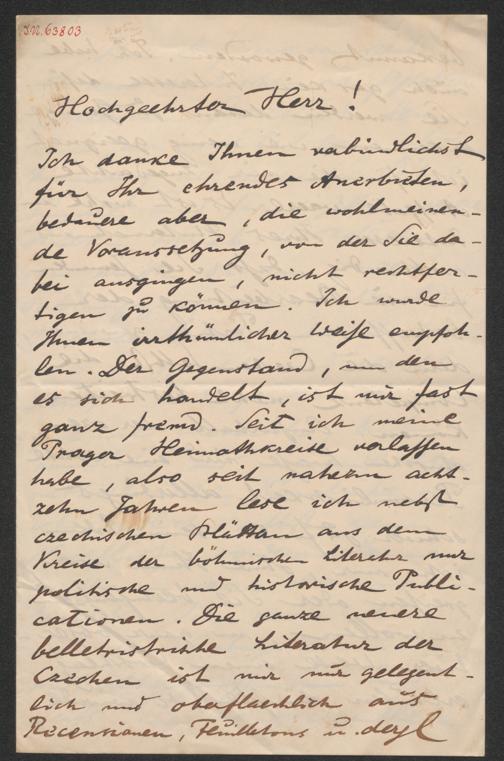 J.N. 63803
Hochgeehrter Herr!
Ich danke Ihnen verbindlichst
für Ihr ehrendes Anerbieten,
bedaure aber, die wohlmeinen-
de Voraussetzung, von der Sie da-
bei ausgingen, nicht rechtfer-
tigen zu können. Ich wurde
Ihnen irrthümlicher Weise empfoh-
len. Der Gegenstand, um den
es sich handelt, ist mir fast
ganz fremd. Seit ich meine
Prager Heimathkreise verlassen
habe, also seit nahezu acht-
zehn Jahren lese ich nebst
czechischen Blättern aus dem
Kreise der böhmischen Literatur nur
politische und historische Publi-
cationen. Die ganze neuere
belletristische Literatur der
Czechen ist mir nur gelegent-
lich und oberflaechlich aus
Recensionen, Feuilletons u. dergl